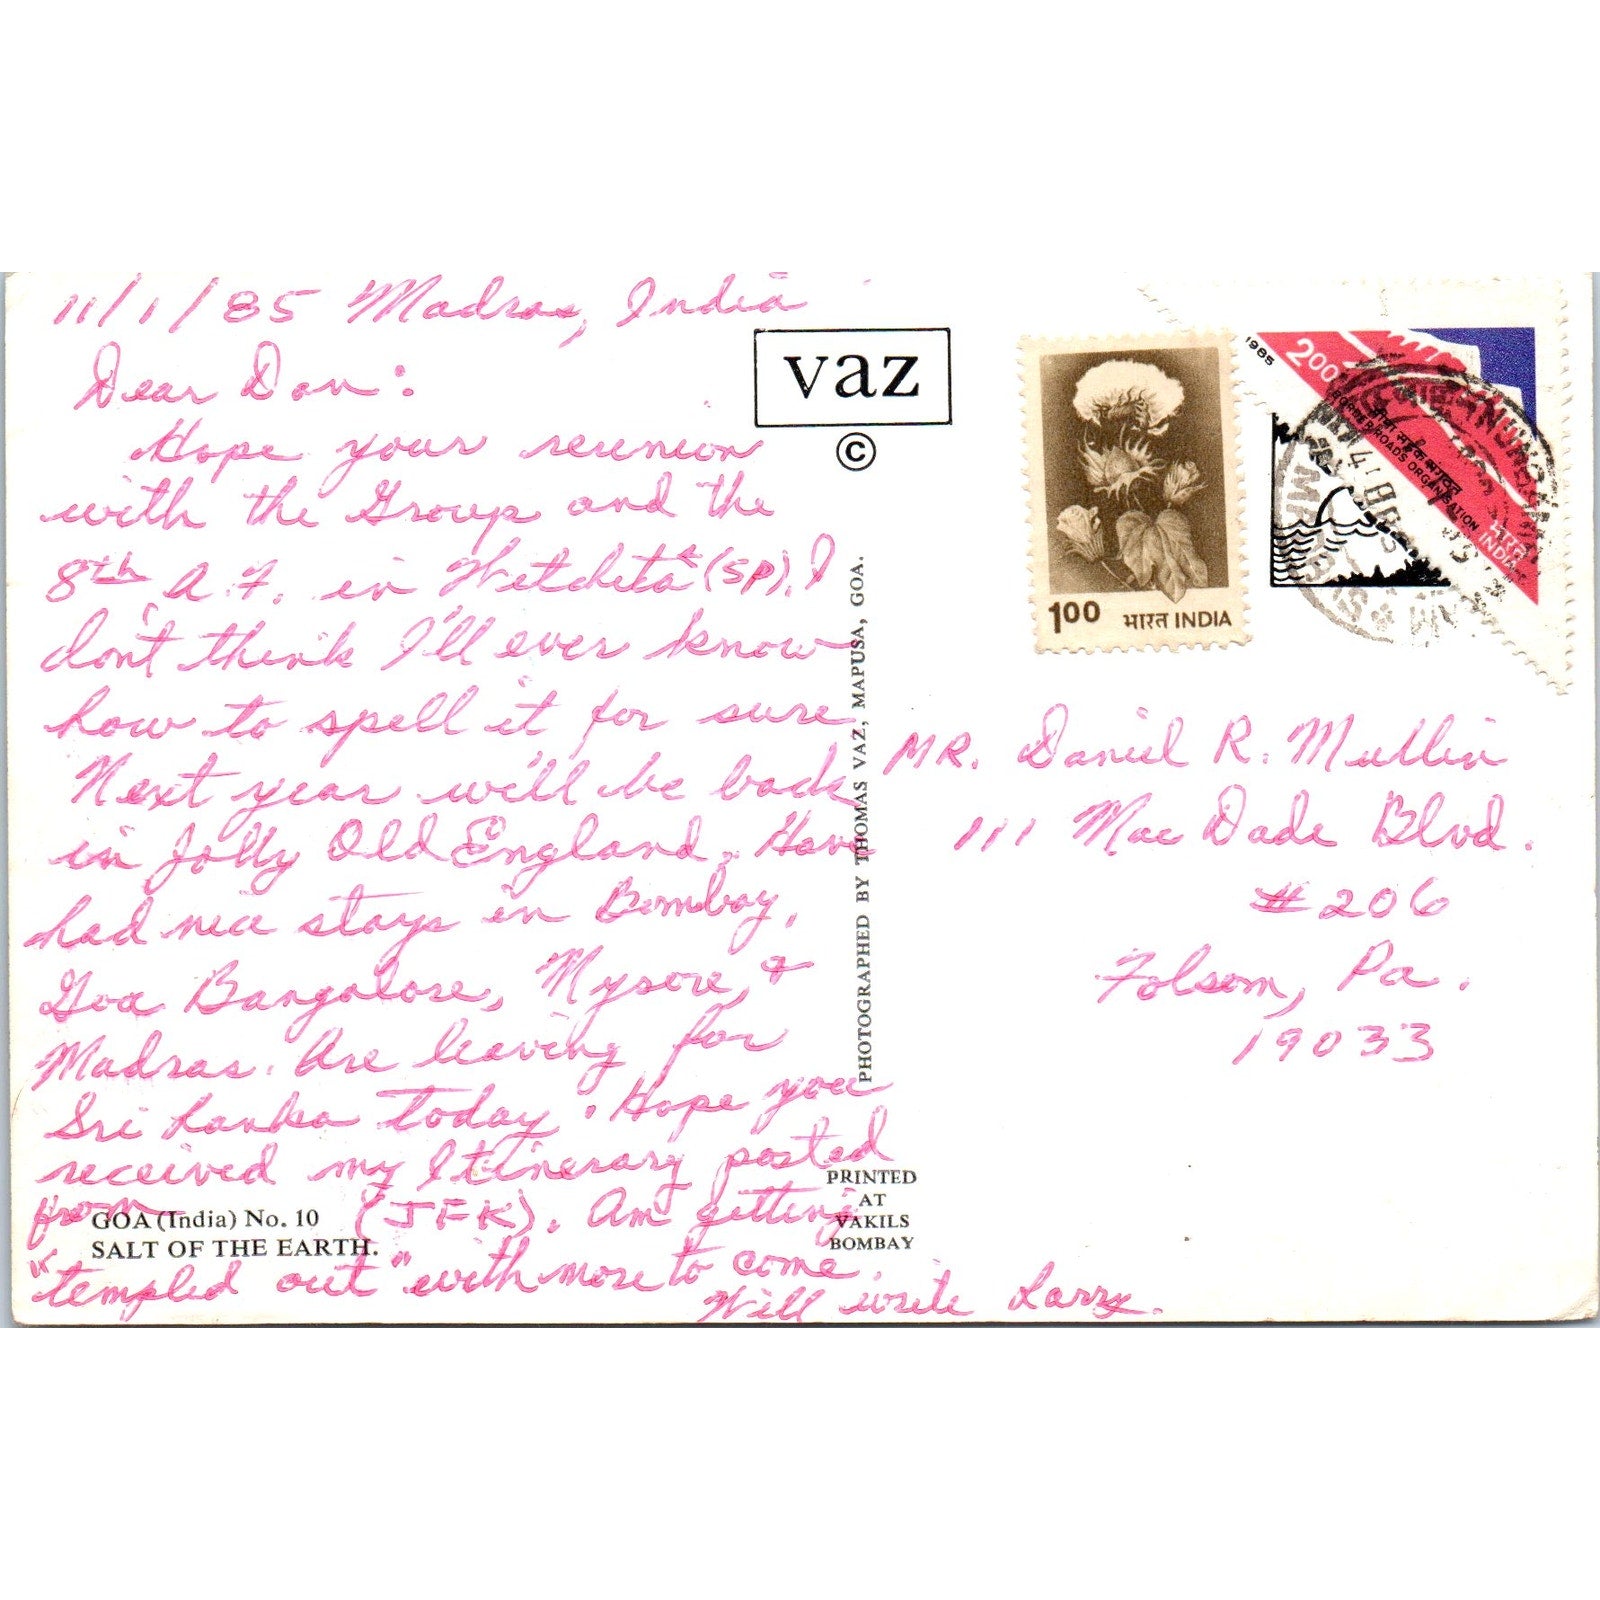 11/1/85 Madras, India
Dear Dan:
Hope your reunion
with the Group and the
8th A.F. in Witcheta (SP). I
don't think I'll ever know
how to spell it for sure
Next year will be back
in Jolly Old England. Have
had nice stays in Bombay,
Goa Bangalore, Mysore, &
Madras. Are leaving for
Sri Lanka today. Hope you
received my Itinerary posted
from (JFK). Am getting
"templed out" with more to come.
Will write Larry.
GOA (India) No. 10
SALT OF THE EARTH.
vaz
©
PHOTOGRAPHED BY THOMAS VAZ, MAPUSA, GOA.
PRINTED
AT
VAKILS
BOMBAY
1.00 भारत INDIA
1985
2.00
सीमा सड़क संगठन
BORDER ROADS ORGANISATION
भारत INDIA
MR. Daniel R. Mullin
111 Mac Dade Blvd.
#206
Folsom, Pa.
19033